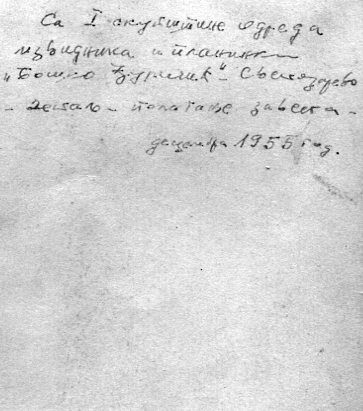 Са I скупштине одреда
извидника и планинки
"Бошко Буха" - Светозарево
- детаљ - полагање завета -
децембра 1955 год.